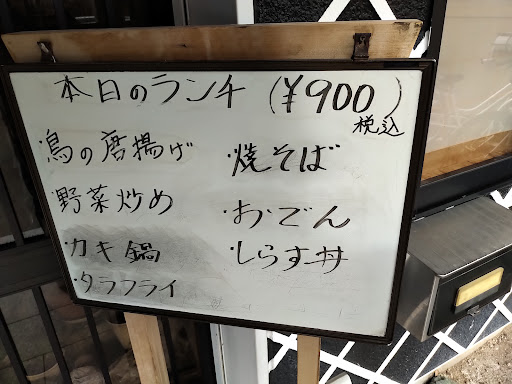 本日のランチ (¥900)
税込
・鳥の唐揚げ
・野菜炒め
・カキ鍋
・タラフライ
・焼そば
・おでん
・しらす丼